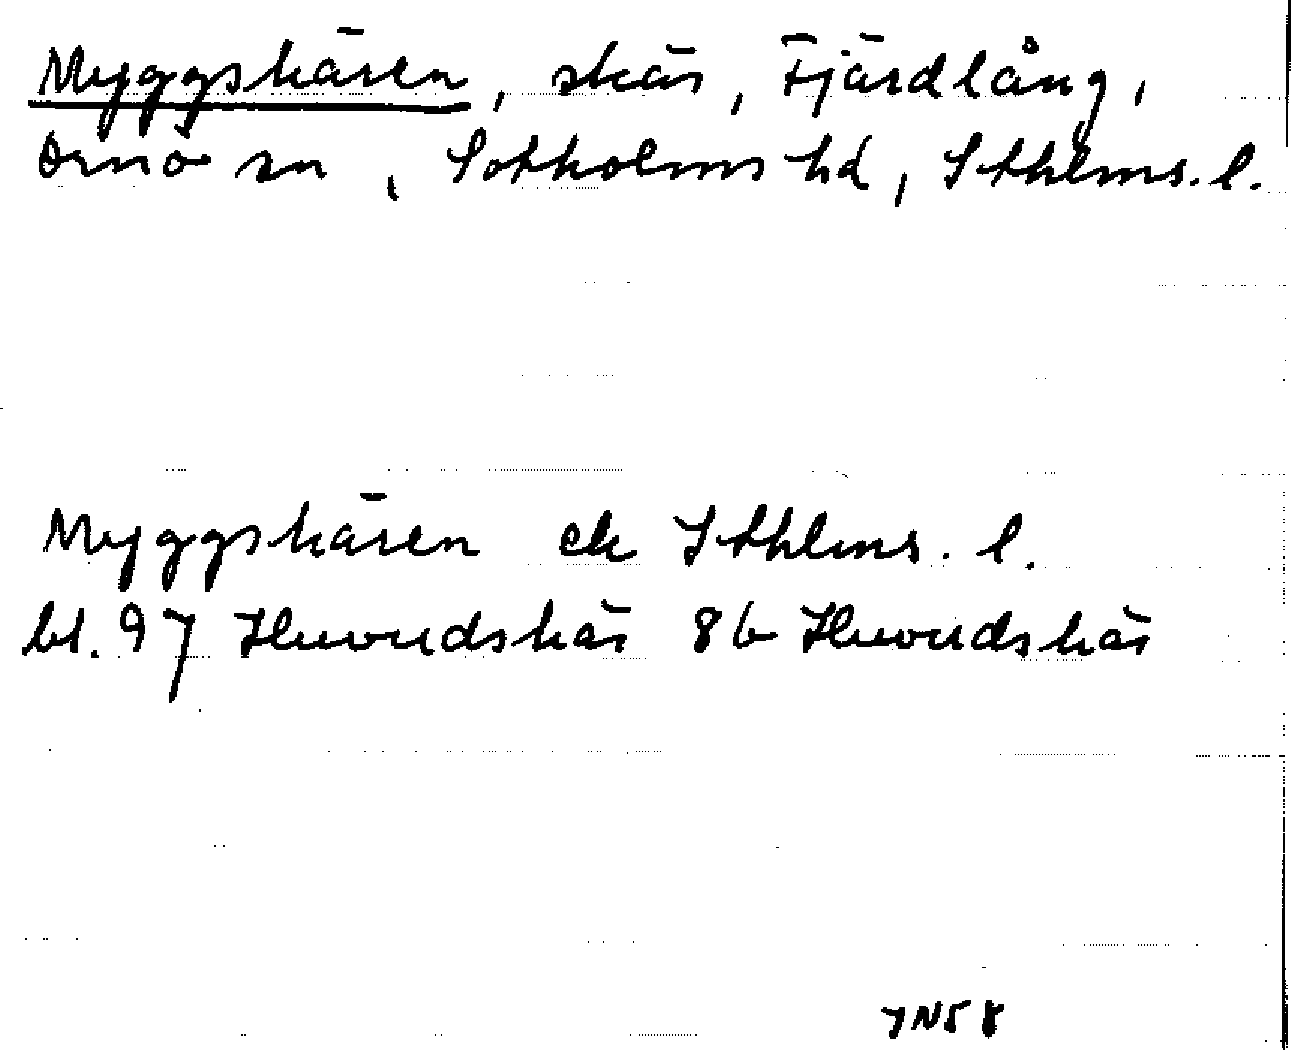 Myggskären, skär, Fjärdlång,
Ornö sn, Sotholms hd, Sthlms. l.
Myggskären ek Sthlms. l.
bl. 97 Huvudskär 86 Huvudskär